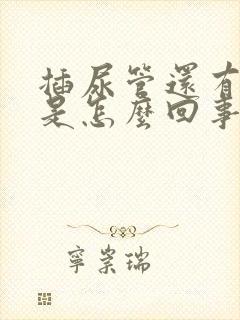 插尿管還有
是怎麼回事
寧崇瑞